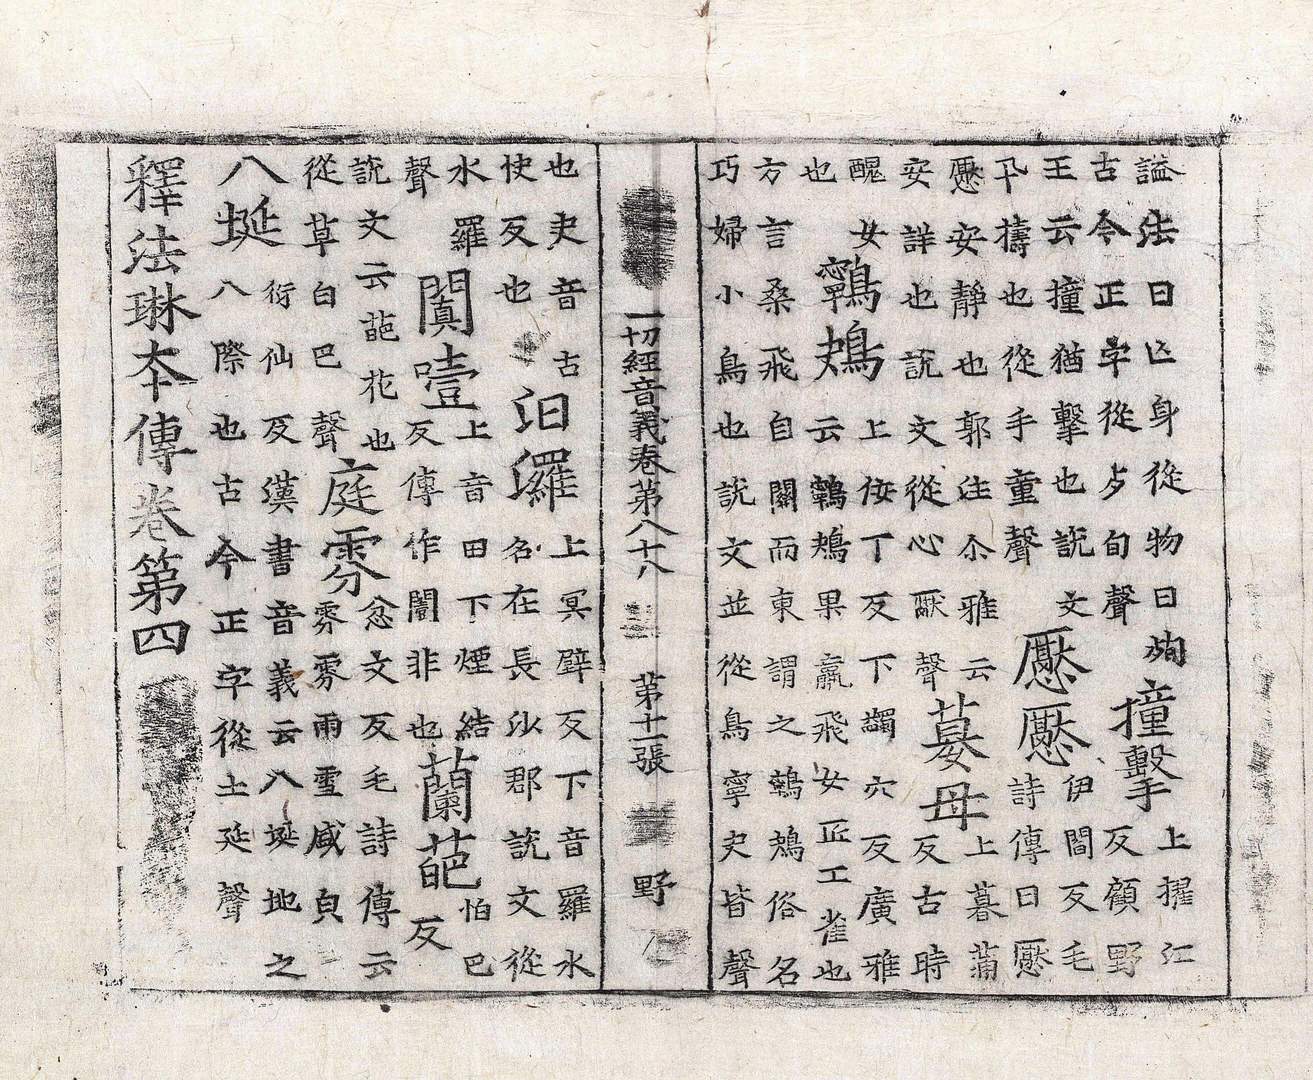 謚法曰亡身從物曰殉
古今正字從歹旬聲
撞擊
上擢江
反顧野
王云撞猶擊也説文
卂擣也從手童聲
懕懕
伊閻反毛
詩傳曰懕
懕安靜也郭注尒雅云
安詳也説文從心猒聲
嫫母
上暮蒲
反古時
醜女
也
鸋鴂
上佞丁反下蠲穴反廣雅
云鸋鴂果蠃飛女匠工雀也
方言桑飛自關而東謂之鸋鴂俗名
巧婦小鳥也説文並從鳥寧夬皆聲
一切經音義卷第八十八 第十一張 野
也夬音古
使反也
汨羅
上冥壁反下音羅水
名在長沙郡説文從
水羅
聲
闐噎
上音田下煙結
反傳作闇非也
蘭葩
怕巴
反
説文云葩花也
從草白巴聲
庭雰
忿文反毛詩傳云
雰雰雨雪盛皃
八埏
衍仙反漢書音義云八埏地之
八際也古今正字從土延聲
釋法琳本傳卷第四